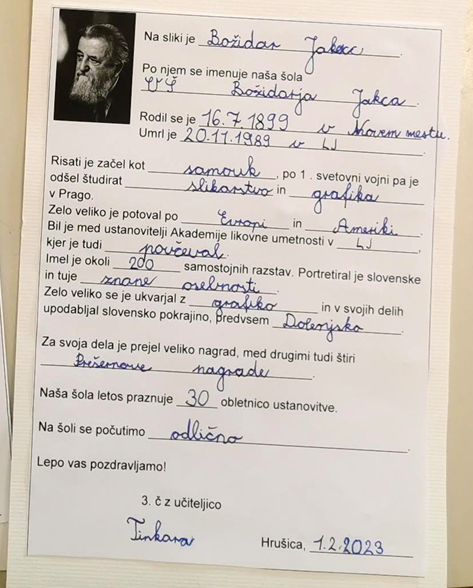 Na sliki je Božidar Jakac.
Po njem se imenuje naša šola
OŠ Božidarja Jakca.
Rodil se je 16.7 1899 v Novem mestu.
Umrl je 20.11.1989 v LJ.
Risati je začel kot samouk, po 1. svetovni vojni pa je
odšel študirat slikarstvo in grafika
v Prago.
Zelo veliko je potoval po Evropi in Ameriki.
Bil je med ustanovitelji Akademije likovne umetnosti v LJ,
kjer je tudi povčeval.
Imel je okoli 200 samostojnih razstav. Portretiral je slovenske
in tuje znane osebnosti.
Zelo veliko se je ukvarjal z grafiko in v svojih delih
upodabljal slovensko pokrajino, predvsem Dolenjsko.
Za svoja dela je prejel veliko nagrad, med drugimi tudi štiri
Prešernove nagrade.
Naša šola letos praznuje 30 obletnico ustanovitve.
Na šoli se počutimo odlično.
Lepo vas pozdravljamo!
3. č z učiteljico
Tinkara
Hrušica, 1.2.2023